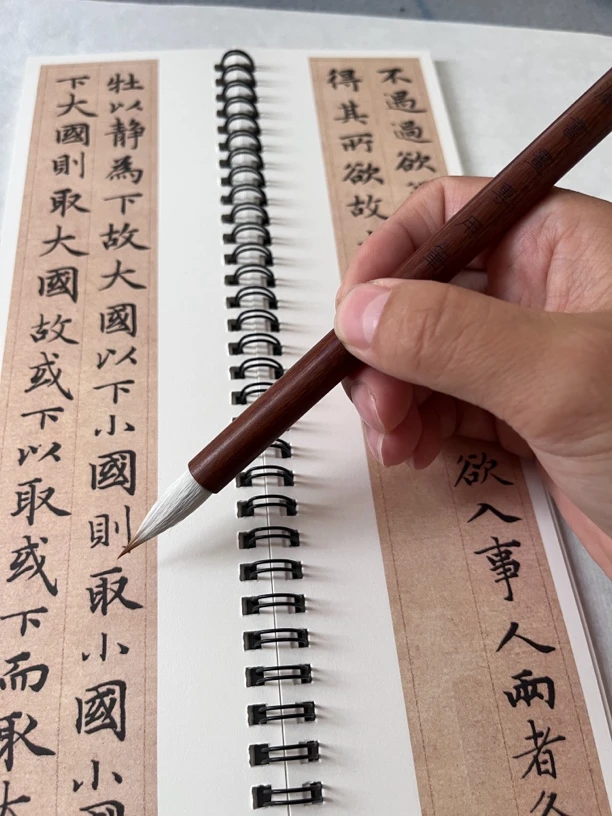 不過過欲
欲入事人兩者
得其所欲故
牡以静為下故大國以下小國則取小國小國
下大國則取大國故或下以取或下而取大